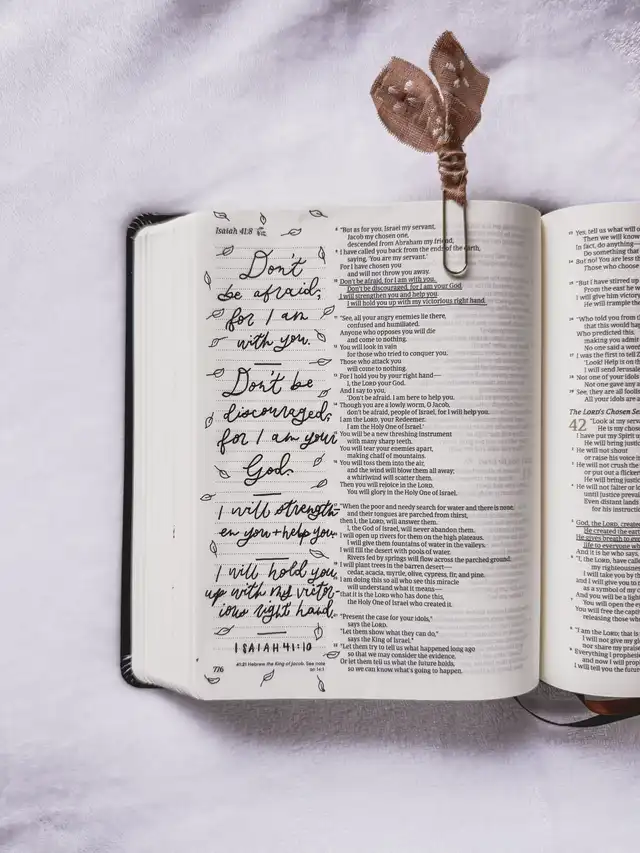 Isaiah 41:8
Don't
be afraid,
for I am
with you.
Don't be
discouraged,
for I am your
God.
I will strength-
en you + help you.
I will hold you
up with my victor-
ious right hand.
ISAIAH 41:10
776
41:21 Hebrew the King of Jacob. See note
on 14:1
8 "But as for you, Israel my servant,
Jacob my chosen one,
descended from Abraham my friend,
9 I have called you back from the ends of the earth,
saying, 'You are my servant.'
For I have chosen you
and will not throw you away.
10 Don't be afraid, for I am with you.
Don't be discouraged, for I am your God.
I will strengthen you and help you.
I will hold you up with my victorious right hand.
11 "See, all your angry enemies lie there,
confused and humiliated.
Anyone who opposes you will die
and come to nothing.
12 You will look in vain
for those who tried to conquer you.
Those who attack you
will come to nothing.
13 For I hold you by your right hand—
I, the LORD your God.
And I say to you,
'Don't be afraid. I am here to help you.
14 Though you are a lowly worm, O Jacob,
don't be afraid, people of Israel, for I will help you.
I am the LORD, your Redeemer.
I am the Holy One of Israel.'
15 You will be a new threshing instrument
with many sharp teeth.
You will tear your enemies apart,
making chaff of mountains.
16 You will toss them into the air,
and the wind will blow them all away;
a whirlwind will scatter them.
Then you will rejoice in the LORD.
You will glory in the Holy One of Israel.
17 "When the poor and needy search for water and there is none,
and their tongues are parched from thirst,
then I, the LORD, will answer them.
I, the God of Israel, will never abandon them.
18 I will open up rivers for them on the high plateaus.
I will give them fountains of water in the valleys.
I will fill the desert with pools of water.
Rivers fed by springs will flow across the parched ground.
19 I will plant trees in the barren desert—
cedar, acacia, myrtle, olive, cypress, fir, and pine.
20 I am doing this so all who see this miracle
will understand what it means—
that it is the LORD who has done this,
the Holy One of Israel who created it.
21 "Present the case for your idols,"
says the LORD.
"Let them show what they can do,"
says the King of Israel.
22 "Let them try to tell us what happened long ago
so that we may consider the evidence.
Or let them tell us what the future holds,
so we can know what's going to happen.
23 Yes, tell us what will o
Then we will know
In fact, do anything—
Do something that
24 But no! You are less th
Those who choose
25 "But I have stirred up
From the east he w
I will give him victory
He will trample the
26 "Who told you from t
that this would hap
Who predicted this,
making you admit
No one said a word
27 I was the first to tell Z
'Look! Help is on th
I will send Jerusale
28 Not one of your idols
Not one gave any
29 See, they are all foolis
All your idols are a
The LORD's Chosen Se
42 "Look at my serv
He is my chose
I have put my Spirit u
He will bring justic
2 He will not shout
or raise his voice i
3 He will not crush the
or put out a flicker
He will bring justic
4 He will not falter or lo
until justice prevai
Even distant lands
for his instructio
5 God, the LORD, create
He created the eart
He gives breath to ev
life to everyone wh
And it is he who says,
6 "I, the LORD, have calle
my righteousnes
I will take you by th
and I will give you to
as a symbol of my c
And you will be a ligh
7 You will open the e
You will free the capti
releasing those who
8 "I am the LORD; that is
I will not give my gl
nor share my praise
9 Everything I prophesie
and now I will prop
I will tell you the futur